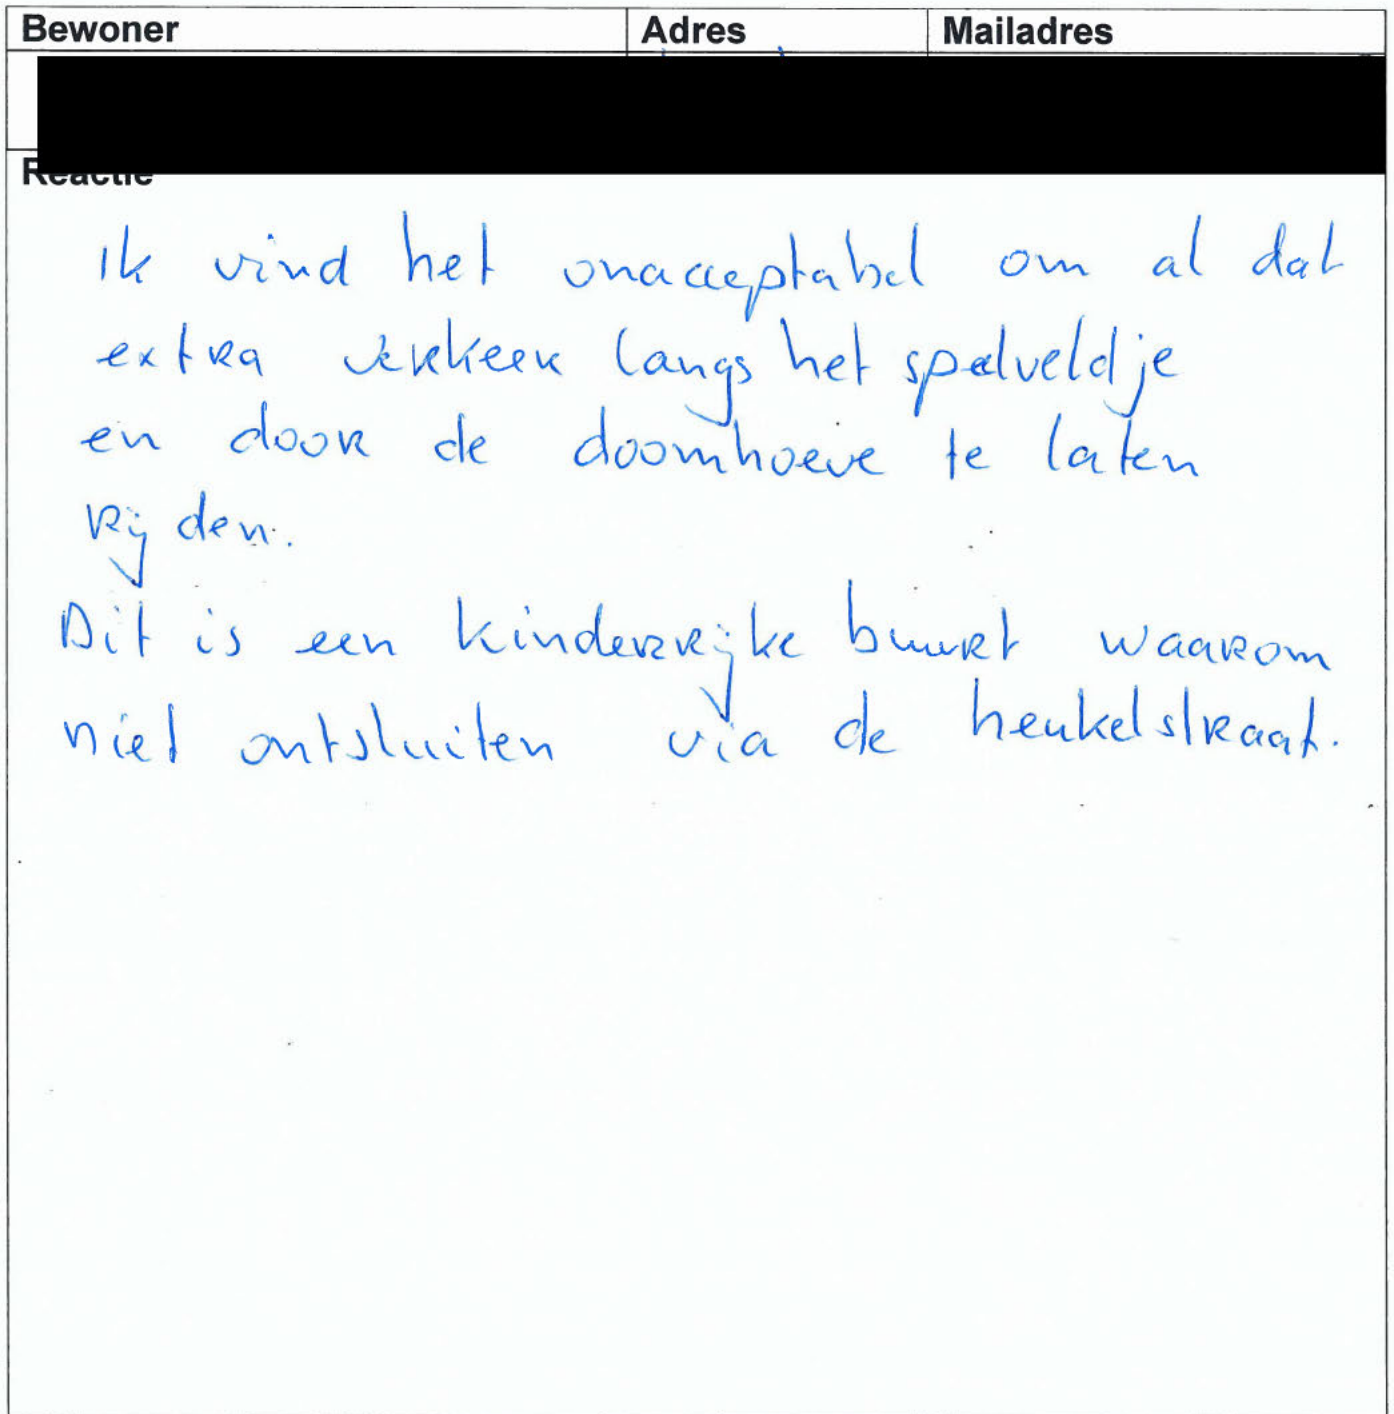 Bewoner Adres Mailadres
Reactie
Ik vind het onacceptabel om al dat
extra verkeer langs het speelveldje
en door de doomhoeve te laten
rijden.
Dit is een kinderrijke buurt waarom
niet ontsluiten via de heukelstraat.